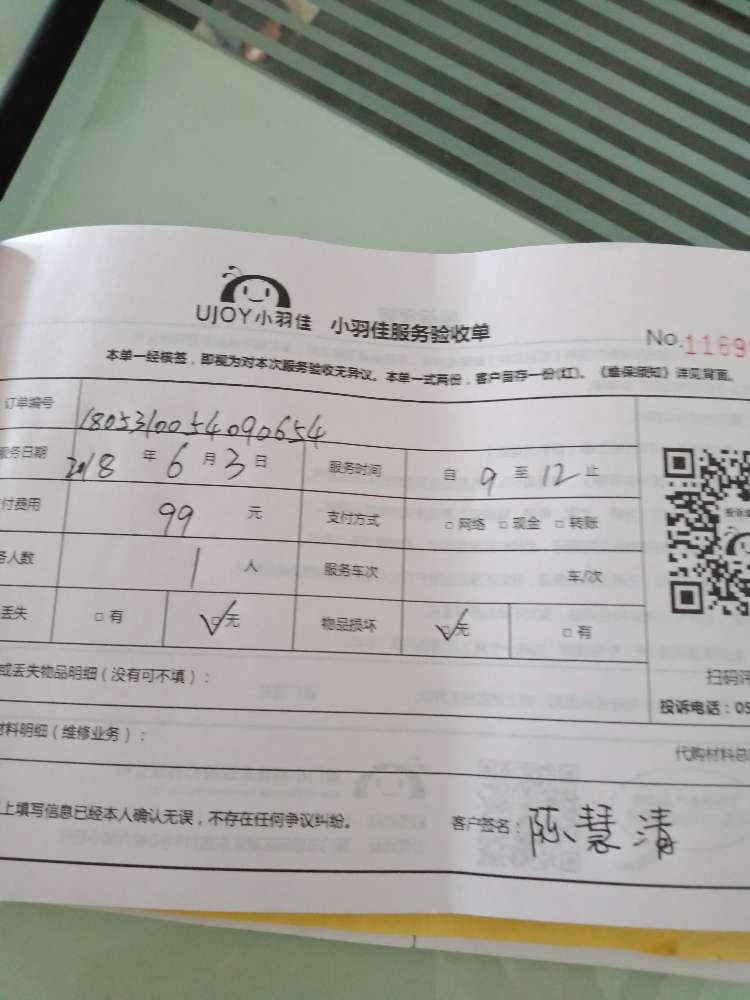 UJOY小羽佳 小羽佳服务验收单
No.1169
本单一经核签，即视为对本次服务验收无异议。本单一式两份，客户留存一份(红)、《维保须知》详见背面。
订单编号 180531005409065​4
服务日期 2018 年 6 月 3 日 服务时间 自 9 至 12 止
付费用 99 元 支付方式 □ 网络 □ 现金 □ 转账
务人数 1 人 服务车次 车/次
丢失 □ 有 ☑无 物品损坏 ☑无 □ 有
或丢失物品明细（没有可不填）：
扫码评
投诉电话：05
材料明细（维修业务）：
代购材料总
上填写信息已经本人确认无误，不存在任何争议纠纷。 客户签名：陈慧清